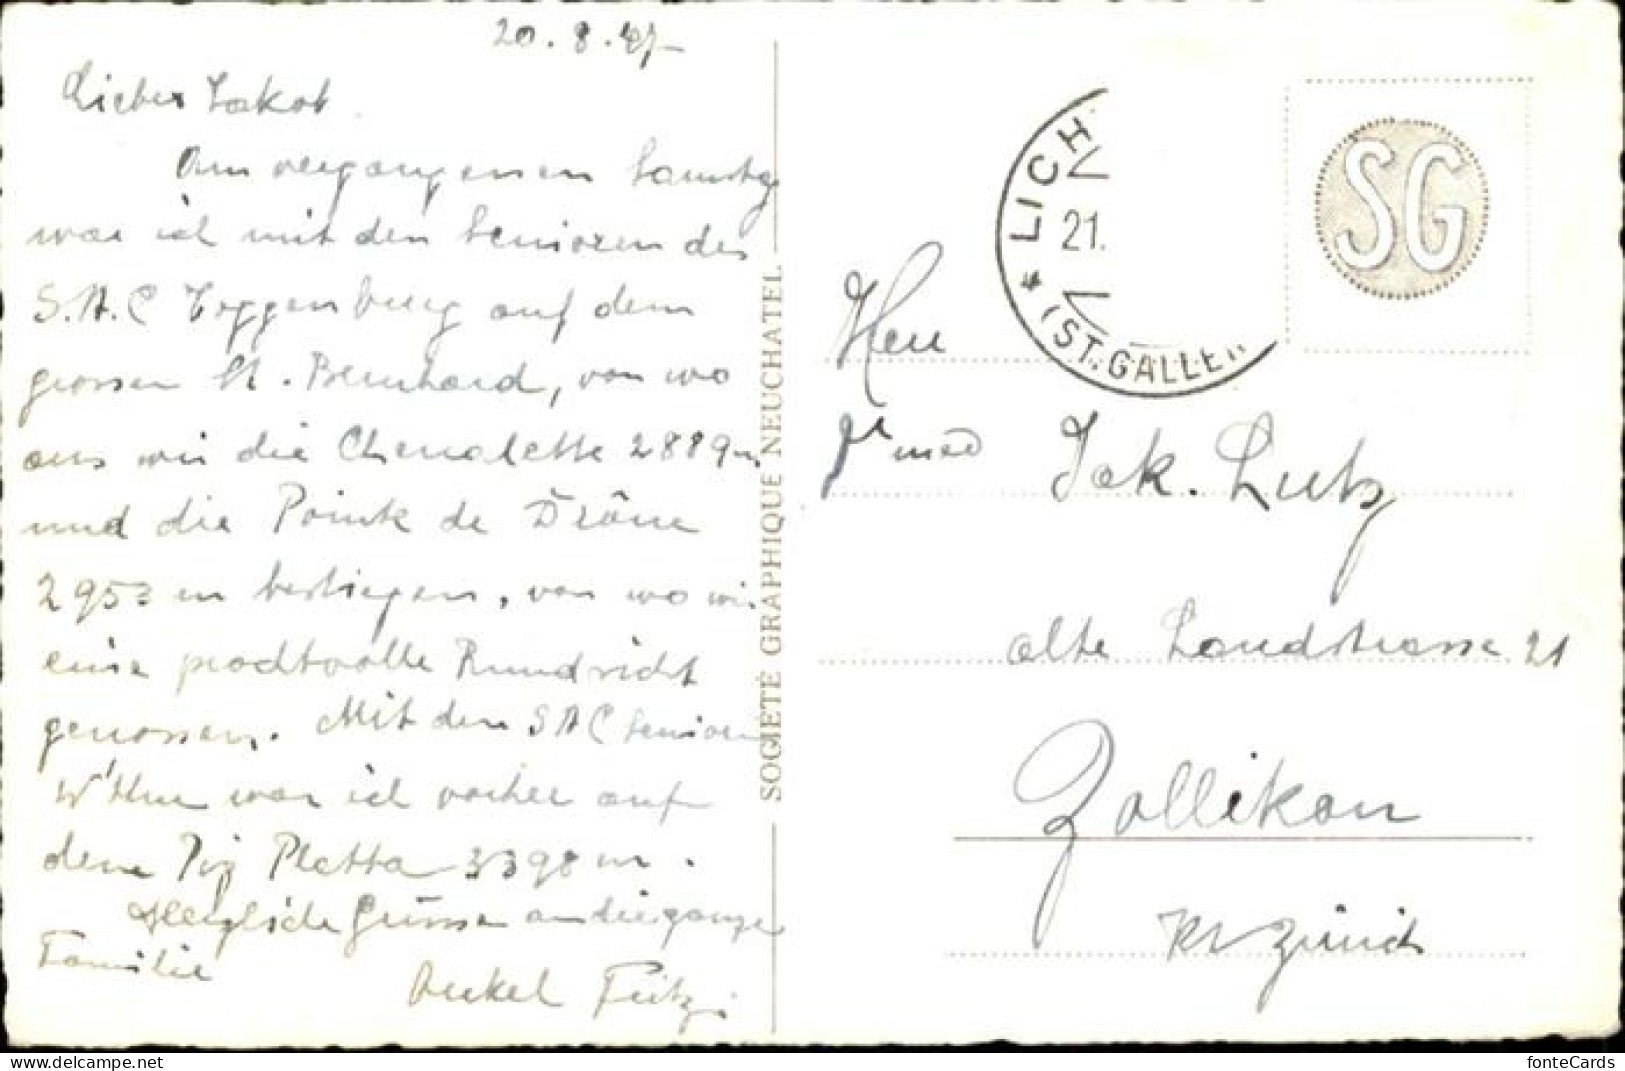 20.8.47
Lieber Jakob.
Am vergangenen Samstag
war ich mit den Senioren des
S.A.C Toggenburg auf dem
grossen St. Bernhard, von wo
aus wir die Chenalette 2889 m
und die Pointe de Drône
2953 m bestiegen, von wo wir
eine prachtvolle Rundsicht
genossen. Mit den SAC Senioren
war ich vorher auf
dem Piz Platta 3398 m.
Herzliche Grüsse an die ganze
Familie
Onkel Fritz.
SOCIÉTÉ GRAPHIQUE NEUCHATEL
LICH
21.
(ST. GALLEN
SG
Herr
Dr med Jak. Lutz
alte Landstrasse 21
Zollikon
Kt Zürich
fonteCards